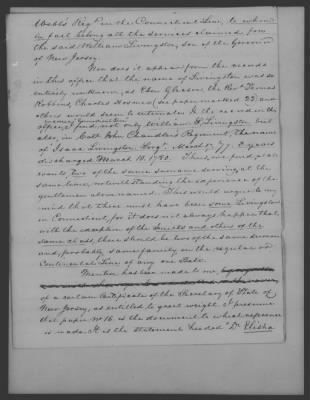 Webb's Reg't in the Connecticut Line, to whom
in fact belong all the services claimed from
the said William Livingston, son of the Governor
of New Jersey.
Nor does it appear from the records
in this office that the name of Livingston was so
entirely unknown, as Eben Gleason, the Rev. Thomas
Robbins, Charles Hosmer, (see paper marked 23) and
others would seem to entertain. In the records in this
office, I find, not only William Livingston, but
also, in Capt. John Chandler's Regiment, the name
of Isaac Livingston, Serg't March 17, 77. 3 years
discharged March 18. 1780. Thus, we find, at all
events, two of the same surname serving at the
same time, notwithstanding the experience of the
gentlemen above named. This would argue to my
mind that there must have been some Livingstons
in Connecticut, for it does not always happen that,
with the exception of the Smiths and others of the
same class, there should be two of the same surname
and, probably, same family, in the regular or
Continental Line of any one State.
Mention has been made to me,
of a certain Certificate of the Secretary of State of
New Jersey, as entitled to great weight. I presume
that paper No 16. is the document to which reference
is made. It is the statement headed "Dr Elisha